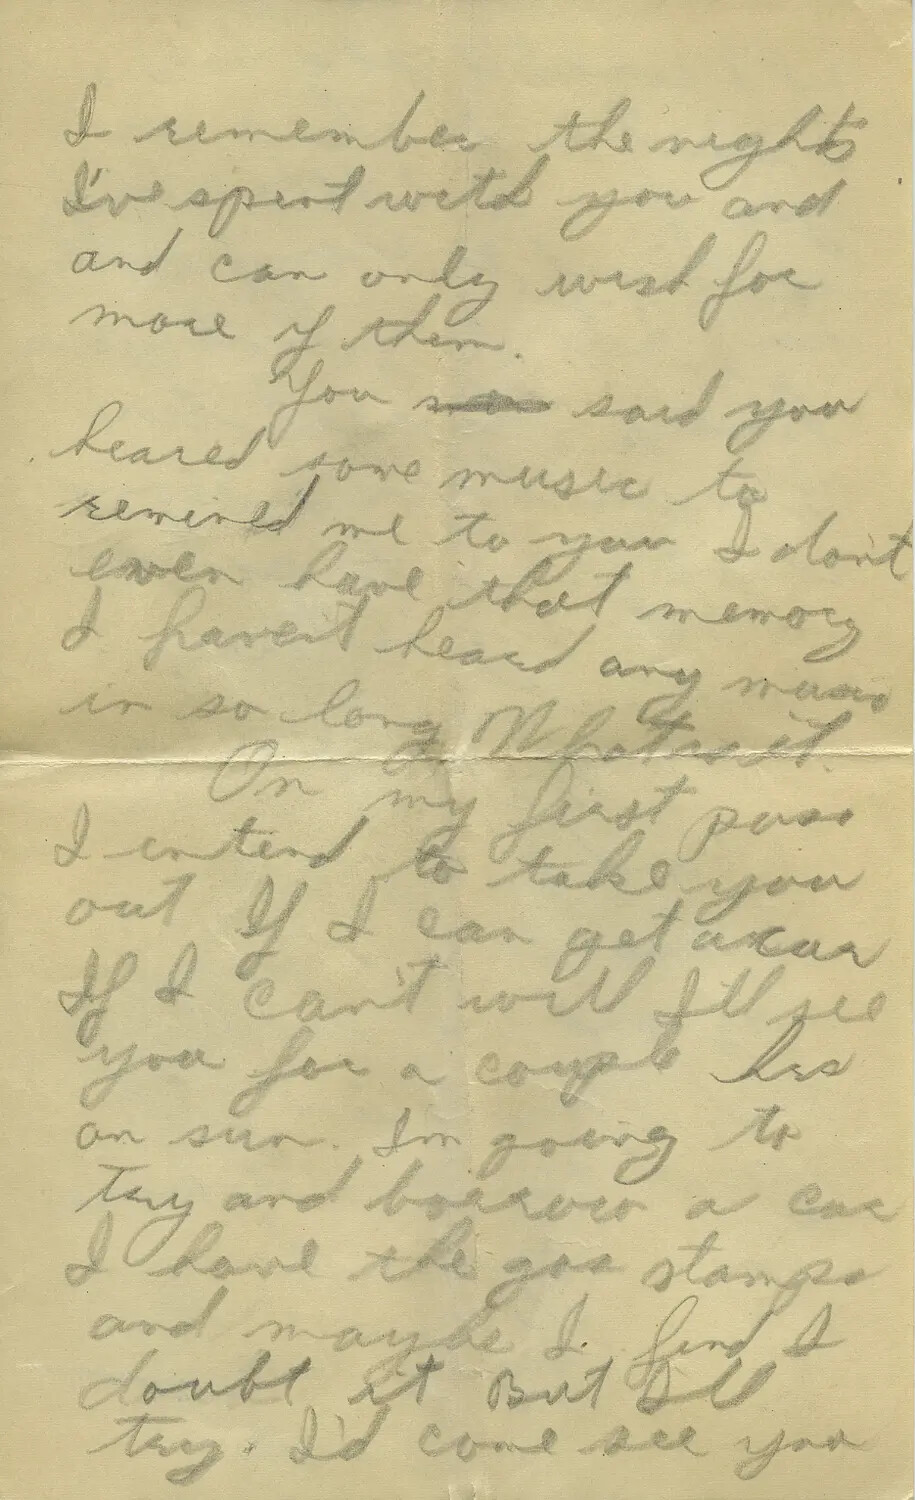 I remember the nights
I've spent with you and
and can only wish for
more of them.
You said you
heared some music to
remined me to you I dont
even have that memory
I haven't heard any music
in so long What is it.
On my first pass
I intend to take you
out If I can get a car
If I can't well I'll see
you for a couple hrs
on sun. I'm going to
try and borrow a car
I have the gas stamps
and maybe I find I
doubt it But I'll
try. I'd come see you